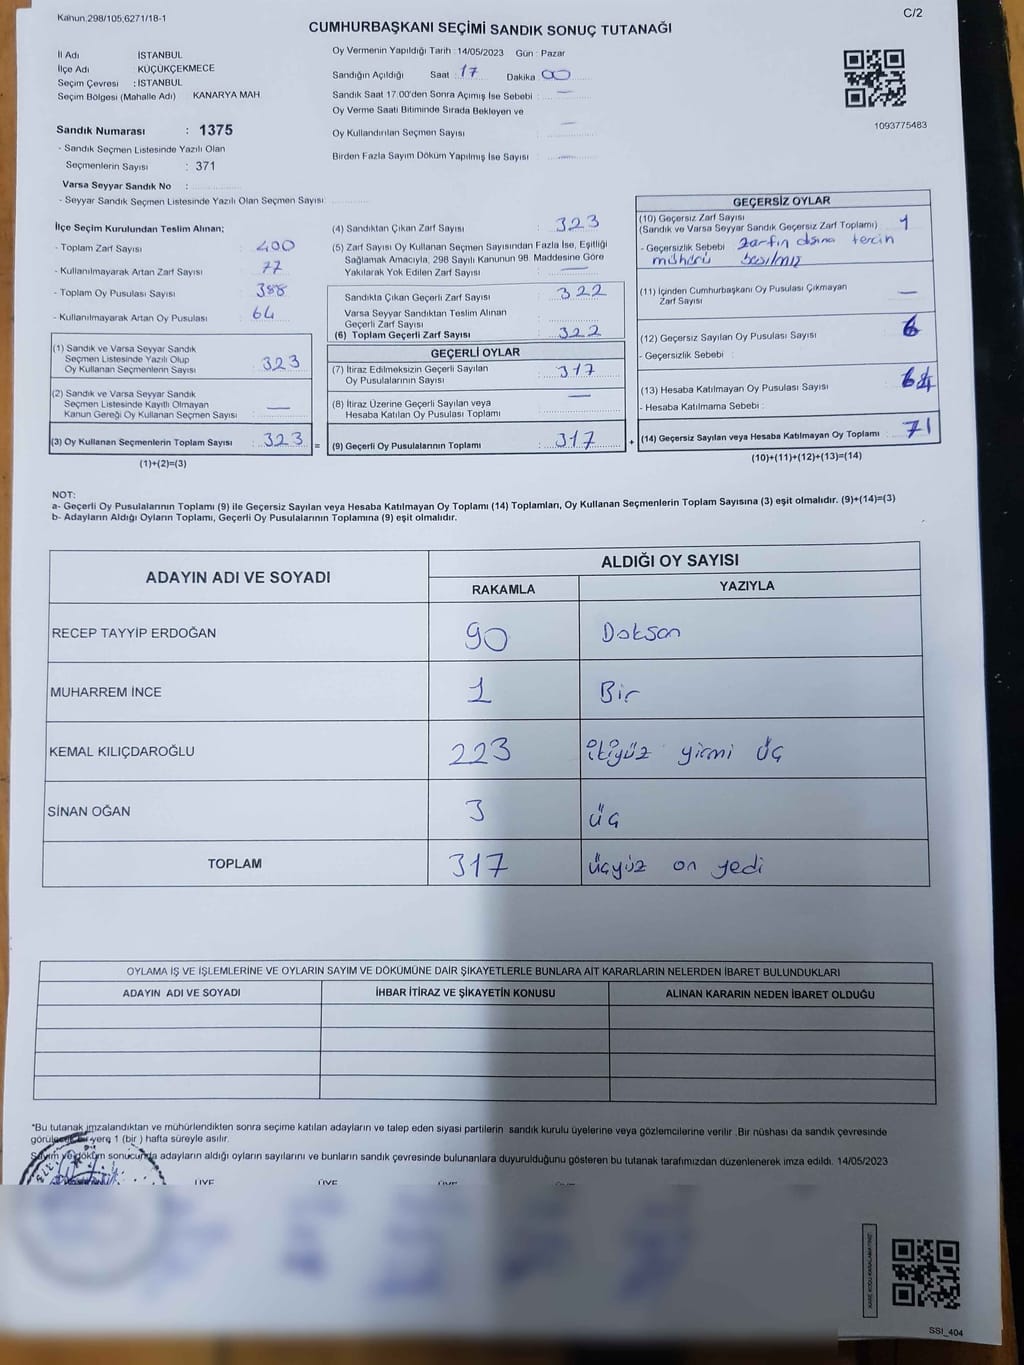 Kanun.298/105,6271/18-1
C/2
CUMHURBAŞKANI SEÇİMİ SANDIK SONUÇ TUTANAĞI
İl Adı İSTANBUL
İlçe Adı KÜÇÜKÇEKMECE
Seçim Çevresi : İSTANBUL
Seçim Bölgesi (Mahalle Adı) KANARYA MAH.
Sandık Numarası : 1375
- Sandık Seçmen Listesinde Yazılı Olan
Seçmenlerin Sayısı : 371
Varsa Seyyar Sandık No :
- Seyyar Sandık Seçmen Listesinde Yazılı Olan Seçmen Sayısı:
Oy Vermenin Yapıldığı Tarih :14/05/2023 Gün : Pazar
Sandığın Açıldığı Saat : 17 Dakika 00
Sandık Saat 17.00'den Sonra Açımış İse Sebebi : —
Oy Verme Saati Bitiminde Sırada Bekleyen ve
Oy Kullandırılan Seçmen Sayısı : —
Birden Fazla Sayım Döküm Yapılmış İse Sayısı : —
1093775483
İlçe Seçim Kurulundan Teslim Alınan;
- Toplam Zarf Sayısı : 400
- Kullanılmayarak Artan Zarf Sayısı : 77
- Toplam Oy Pusulası Sayısı : 388
- Kullanılmayarak Artan Oy Pusulası : 64
(1) Sandık ve Varsa Seyyar Sandık
Seçmen Listesinde Yazılı Olup
Oy Kullanan Seçmenlerin Sayısı : 323
(2) Sandık ve Varsa Seyyar Sandık
Seçmen Listesinde Kayıtlı Olmayan
Kanun Gereği Oy Kullanan Seçmen Sayısı : —
(3) Oy Kullanan Seçmenlerin Toplam Sayısı : 323 =
(1)+(2)=(3)
(4) Sandıktan Çıkan Zarf Sayısı : 323
(5) Zarf Sayısı Oy Kullanan Seçmen Sayısından Fazla İse, Eşitliği
Sağlamak Amacıyla, 298 Sayılı Kanunun 98. Maddesine Göre
Yakılarak Yok Edilen Zarf Sayısı : —
Sandıkta Çıkan Geçerli Zarf Sayısı : 322
Varsa Seyyar Sandıktan Teslim Alınan
Geçerli Zarf Sayısı :
(6) Toplam Geçerli Zarf Sayısı : 322
GEÇERLİ OYLAR
(7) İtiraz Edilmeksizin Geçerli Sayılan
Oy Pusulalarının Sayısı : 317
(8) İtiraz Üzerine Geçerli Sayılan veya
Hesaba Katılan Oy Pusulası Toplamı : —
(9) Geçerli Oy Pusulalarının Toplamı : 317 +
GEÇERSİZ OYLAR
(10) Geçersiz Zarf Sayısı
(Sandık ve Varsa Seyyar Sandık Geçersiz Zarf Toplamı) : 1
- Geçersizlik Sebebi : zarfın dışına tercih
mühürü basılmış
(11) İçinden Cumhurbaşkanı Oy Pusulası Çıkmayan
Zarf Sayısı : —
(12) Geçersiz Sayılan Oy Pusulası Sayısı : 6
- Geçersizlik Sebebi :
(13) Hesaba Katılmayan Oy Pusulası Sayısı : 64
- Hesaba Katılmama Sebebi :
(14) Geçersiz Sayılan veya Hesaba Katılmayan Oy Toplamı : 71
(10)+(11)+(12)+(13)=(14)
NOT:
a- Geçerli Oy Pusulalarının Toplamı (9) ile Geçersiz Sayılan veya Hesaba Katılmayan Oy Toplamı (14) Toplamları, Oy Kullanan Seçmenlerin Toplam Sayısına (3) eşit olmalıdır. (9)+(14)=(3)
b- Adayların Aldığı Oyların Toplamı, Geçerli Oy Pusulalarının Toplamına (9) eşit olmalıdır.
ADAYIN ADI VE SOYADI ALDIĞI OY SAYISI
RAKAMLA YAZIYLA
RECEP TAYYİP ERDOĞAN 90 Doksan
MUHARREM İNCE 1 Bir
KEMAL KILIÇDAROĞLU 223 ikiyüz yirmi üç
SİNAN OĞAN 3 üç
TOPLAM 317 üçyüz on yedi
OYLAMA İŞ VE İŞLEMLERİNE VE OYLARIN SAYIM VE DÖKÜMÜNE DAİR ŞİKAYETLERLE BUNLARA AİT KARARLARIN NELERDEN İBARET BULUNDUKLARI
ADAYIN ADI VE SOYADI İHBAR İTİRAZ VE ŞİKAYETİN KONUSU ALINAN KARARIN NEDEN İBARET OLDUĞU
*Bu tutanak imzalandıktan ve mühürlendikten sonra seçime katılan adayların ve talep eden siyasi partilerin sandık kurulu üyelerine veya gözlemcilerine verilir .Bir nüshası da sandık çevresinde
görülecek bir yere 1 (bir ) hafta süreyle asılır.
Sayım ve döküm sonucunda adayların aldığı oyların sayılarını ve bunların sandık çevresinde bulunanlara duyurulduğunu gösteren bu tutanak tarafımızdan düzenlenerek imza edildi. 14/05/2023
ÜYE ÜYE ÜYE
KARE KODU KARALAMAYINIZ
SSI_404